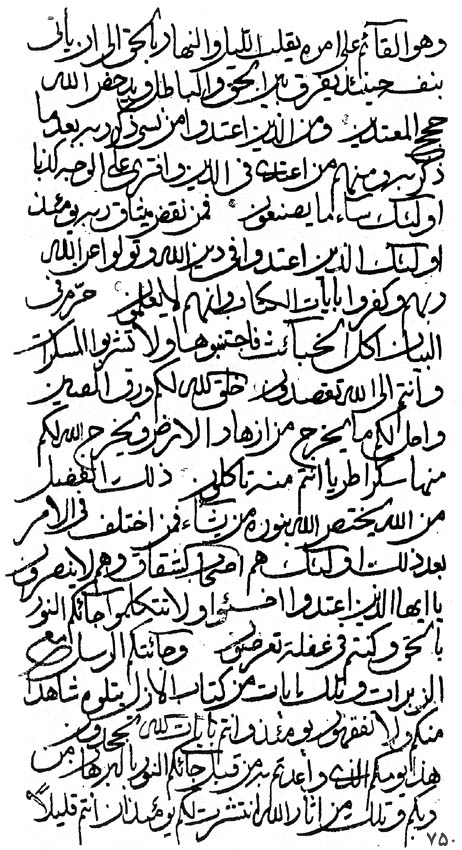 وهو القآئم علی امره یقلب اللیل والنهار بالحق الی ان یاتی
بنفـ حینئذ یفرق بین الحق والباطل ویدحض الله
حجج المعتدین ومن الذین اعتدوا من نسی ذکر ربه بعد ما
ذکر به ومنهم من اعتدی فی الدین وافتری علی الوحی کذبا
اولئک ساء ما یصنعون فمن نقض میثاق ربه یومئذ
اولئک الذین اعتدوا فی دین الله وتولوا عن الله
ربهم وکفروا بایات الکتاب وانهم لا یعلمون حرّم فی
البیان اکل الخبآئث فاجتنبوها ولا تشربوا المسکرات
وانتم الی الله تقصدون خلق الله لکم ورق الصین
واحل لکم ما یخرج من ازهار الارض ویخرج الله لکم
منها سکرا طریا انتم منه تاکلون ذلک الفضل
من الله یختص الله بنوره من یشاء فمن اختلف فی الامر
بعد ذلک اولئک هم اصحاب الشقاق وهم لا ینصرون
یا ایها الذین اعتدوا اخسئوا ولا تتکلموا جائکم النور
بالحق وکنتم فی غفلة تعرضون وجائتکم الرسل مع
الزبرات وتلک ایات من کتاب الازل یتلوه شاهد
منکم ولا تفقهون یومئذ وانتم بایات الله تجحدون
هذا یومکم الذی واعدتم به من قبل جائکم النور بالبرهان من
ربکم وتلک من اثار الله انتشرت لکم یومئذ ان انتم قلیلاً
۷۵۰